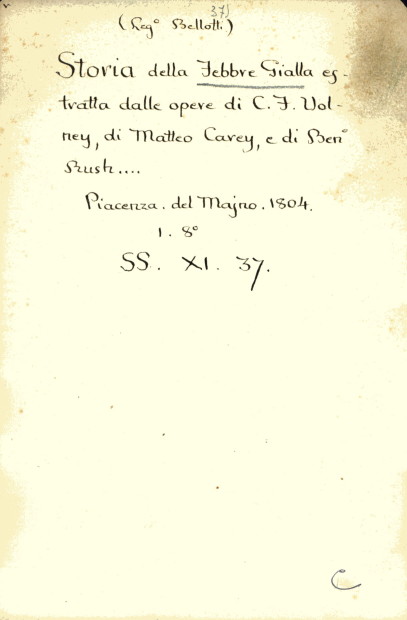 37)
(Leg° Bellotti.)
Storia della Febbre Gialla es-
tratta dalle opere di C. F. Vol-
ney, di Matteo Carey, e di Ben°
Rush....
Piacenza. del Majno. 1804.
1. 8°
SS. XI. 37.
C